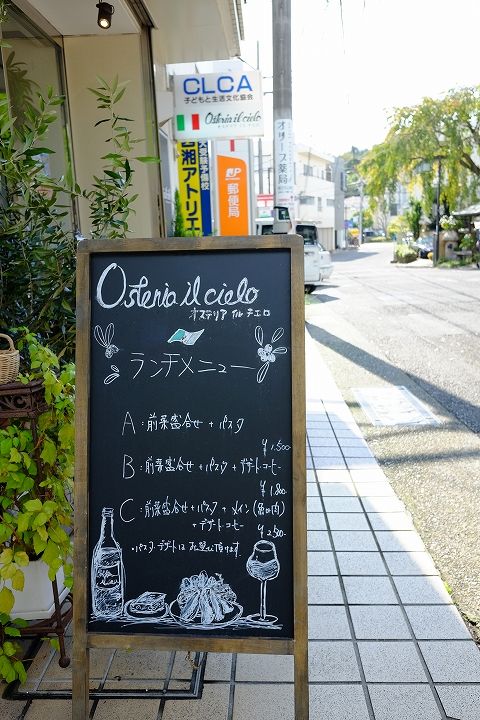 CLCA
子どもと生活文化協会
Osteria il cielo
オリーブ薬局
大学受験予備校
湘アトリエ
郵便局
Osteria il cielo
オステリア イル チエロ
ランチメニュー
A:前菜盛合せ + パスタ
¥1,500
B:前菜盛合せ + パスタ + デザートコーヒー
¥1,800
C:前菜盛合せ + パスタ + メイン(魚or肉)
+ デザートコーヒー
¥2,500
・パスタ、デザートは お選び頂けます。